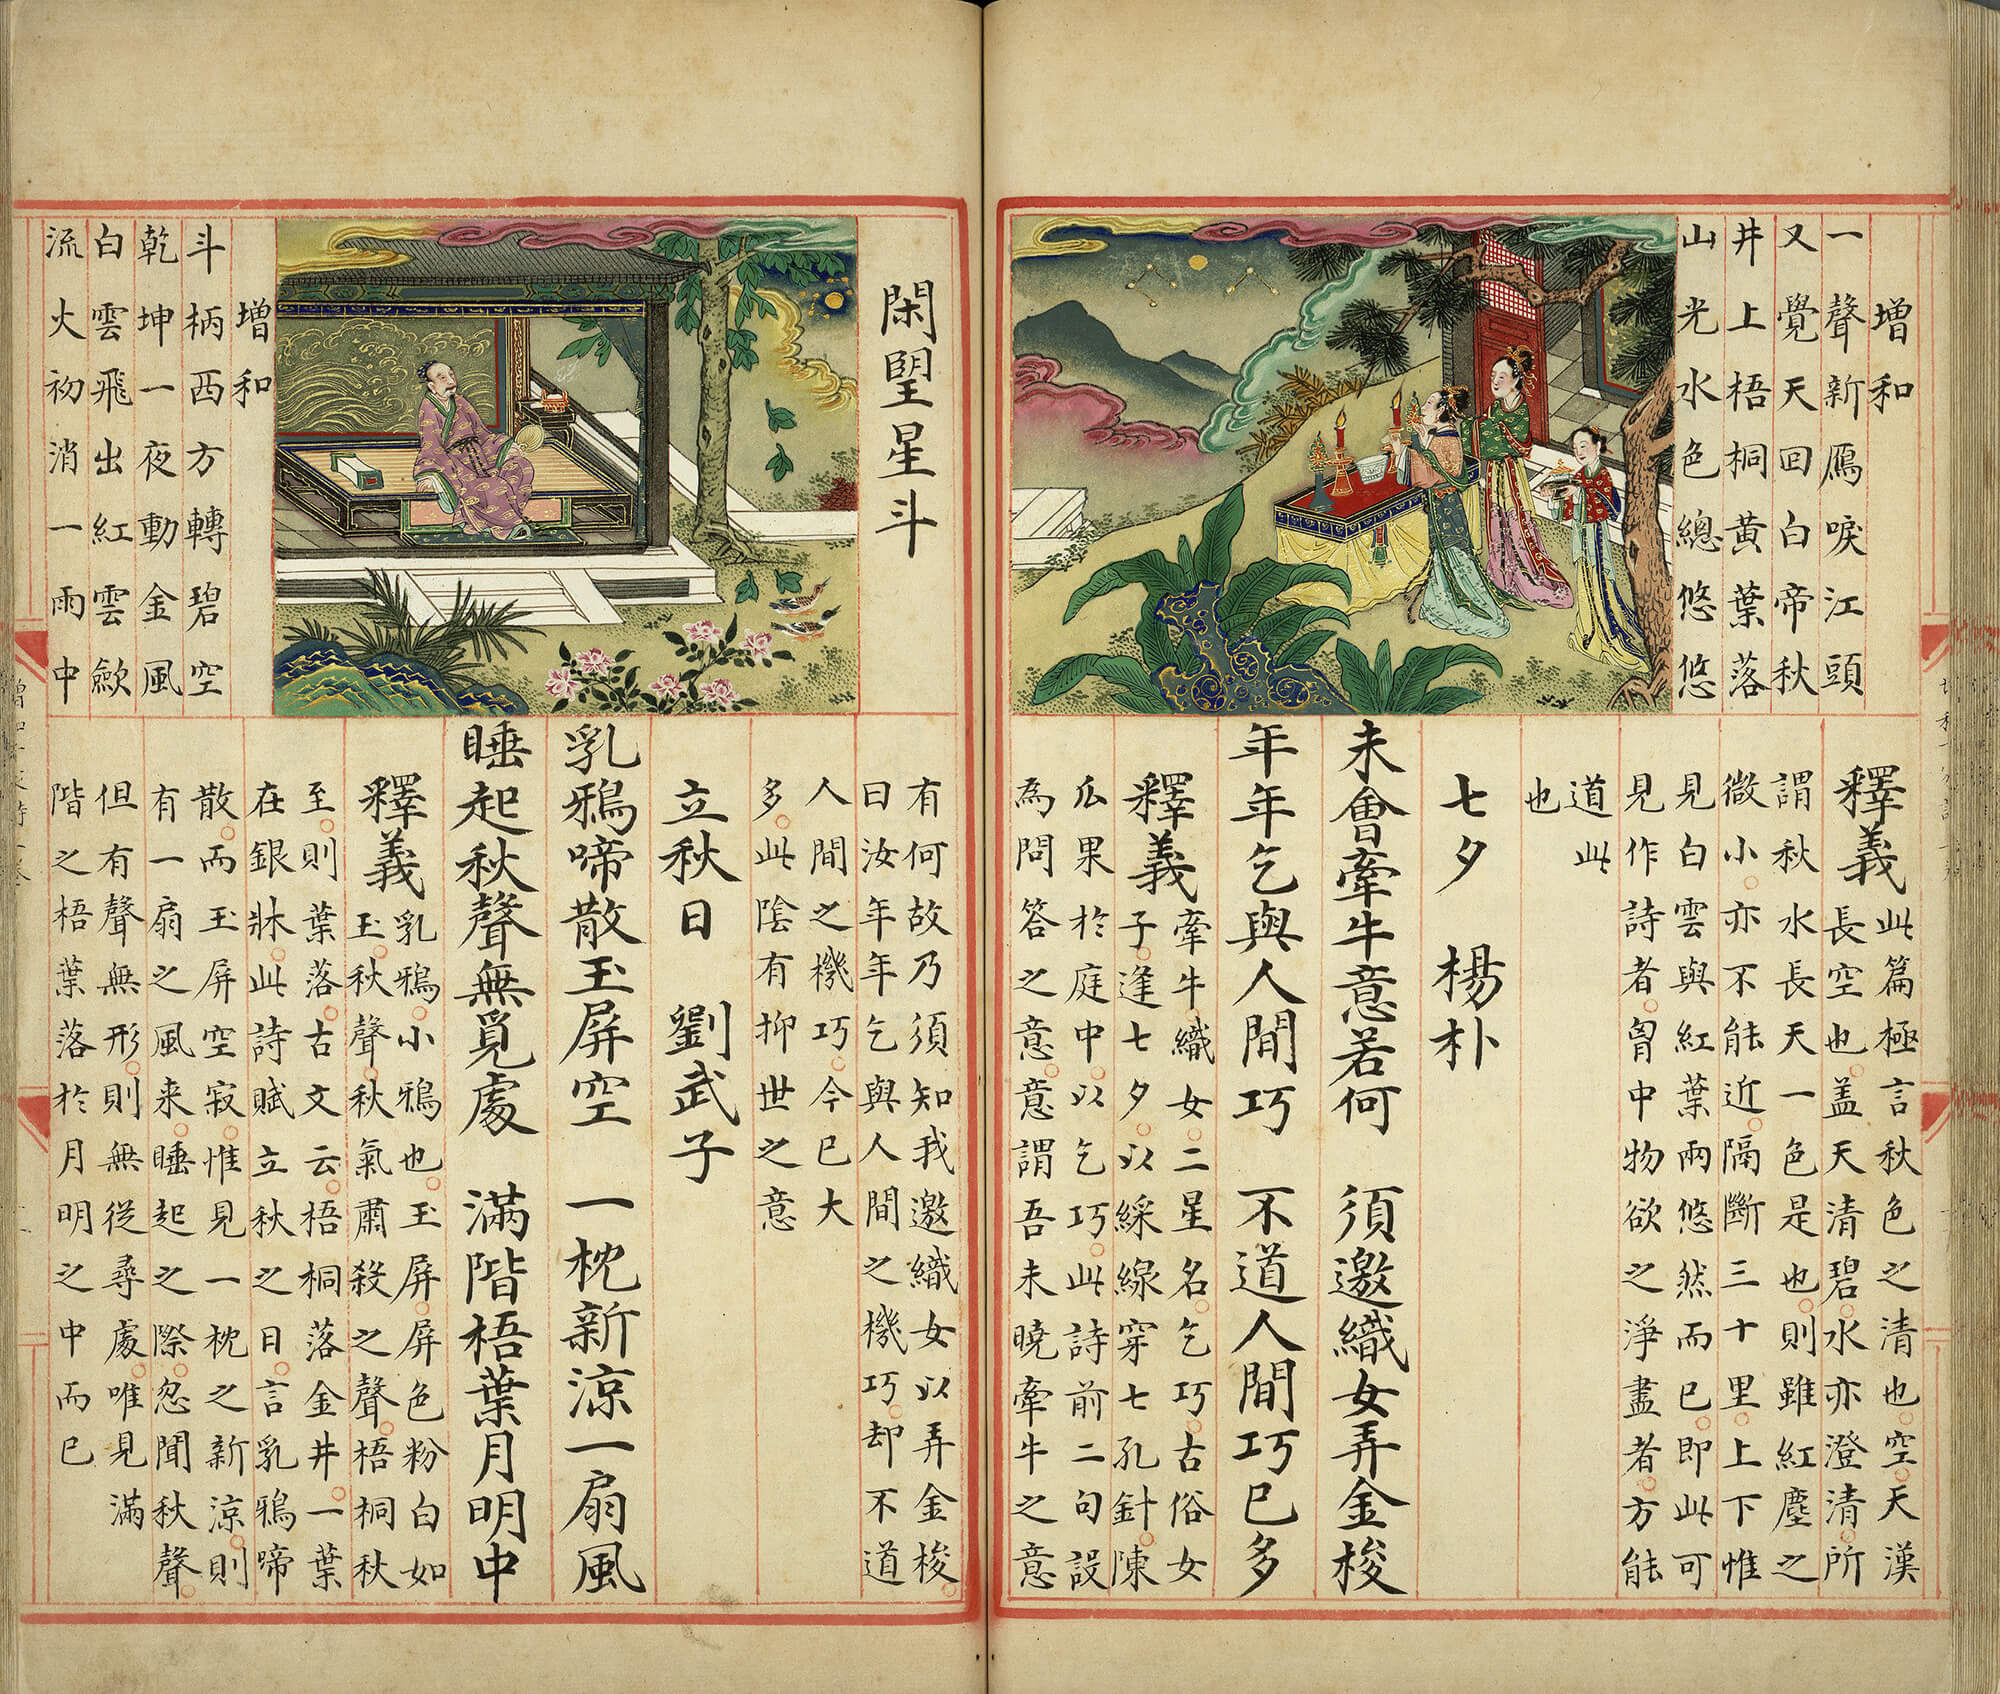 增和
一聲新鴈唳江頭
又覺天回白帝秋
井上梧桐黄葉落
山光水色總悠悠
釋義此篇極言秋色之清也空天漢
長空也盖天清碧水亦澄清所
謂秋水長天一色是也則雖紅塵之
微小亦不能近隔斷三十里上下惟
見白雲與紅葉兩悠然而已即此可
見作詩者胷中物欲之淨盡者方能
道此
也
七夕 楊朴
未會牽牛意若何 須邀織女弄金梭
年年乞與人間巧 不道人間巧已多
釋義牽牛織女二星名乞巧古俗女
子逢七夕以綵線穿七孔針陳
瓜果於庭中以乞巧此詩前二句設
為問答之意意謂吾未曉牽牛之意
閑朢星斗
有何故乃須知我邀織女以弄金梭
曰汝年年乞與人間之機巧却不道
人間之機巧今已大
多此陰有抑世之意
立秋日 劉武子
乳鴉啼散玉屏空 一枕新涼一扇風
睡起秋聲無覓處 滿階梧葉月明中
增和
斗柄西方轉碧空
乾坤一夜動金風
白雲飛出紅雲歛
流火初消一雨中
釋義乳鴉小鴉也玉屏屏色粉白如
玉秋聲秋氣肅殺之聲梧桐秋
至則葉落古文云梧桐落金井一葉
在銀牀此詩賦立秋之日言乳鴉啼
散而玉屏空寂惟見一枕之新涼則
有一扇之風来睡起之際忽聞秋聲
但有聲無形則無從尋處唯見滿
階之梧葉落於月明之中而已